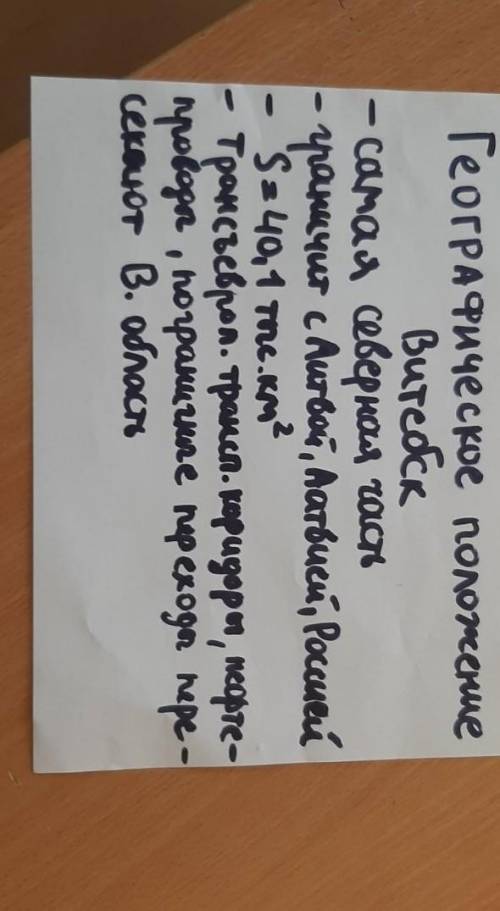 Географическое положение
Витебск
- самая северная часть
- граничит с Литвой, Латвией, Россией
- S = 40,1 тыс. км²
- Трансъевроп. трансп. коридоры, нефте-
проводы, пограничные переходы пере-
секают В. область